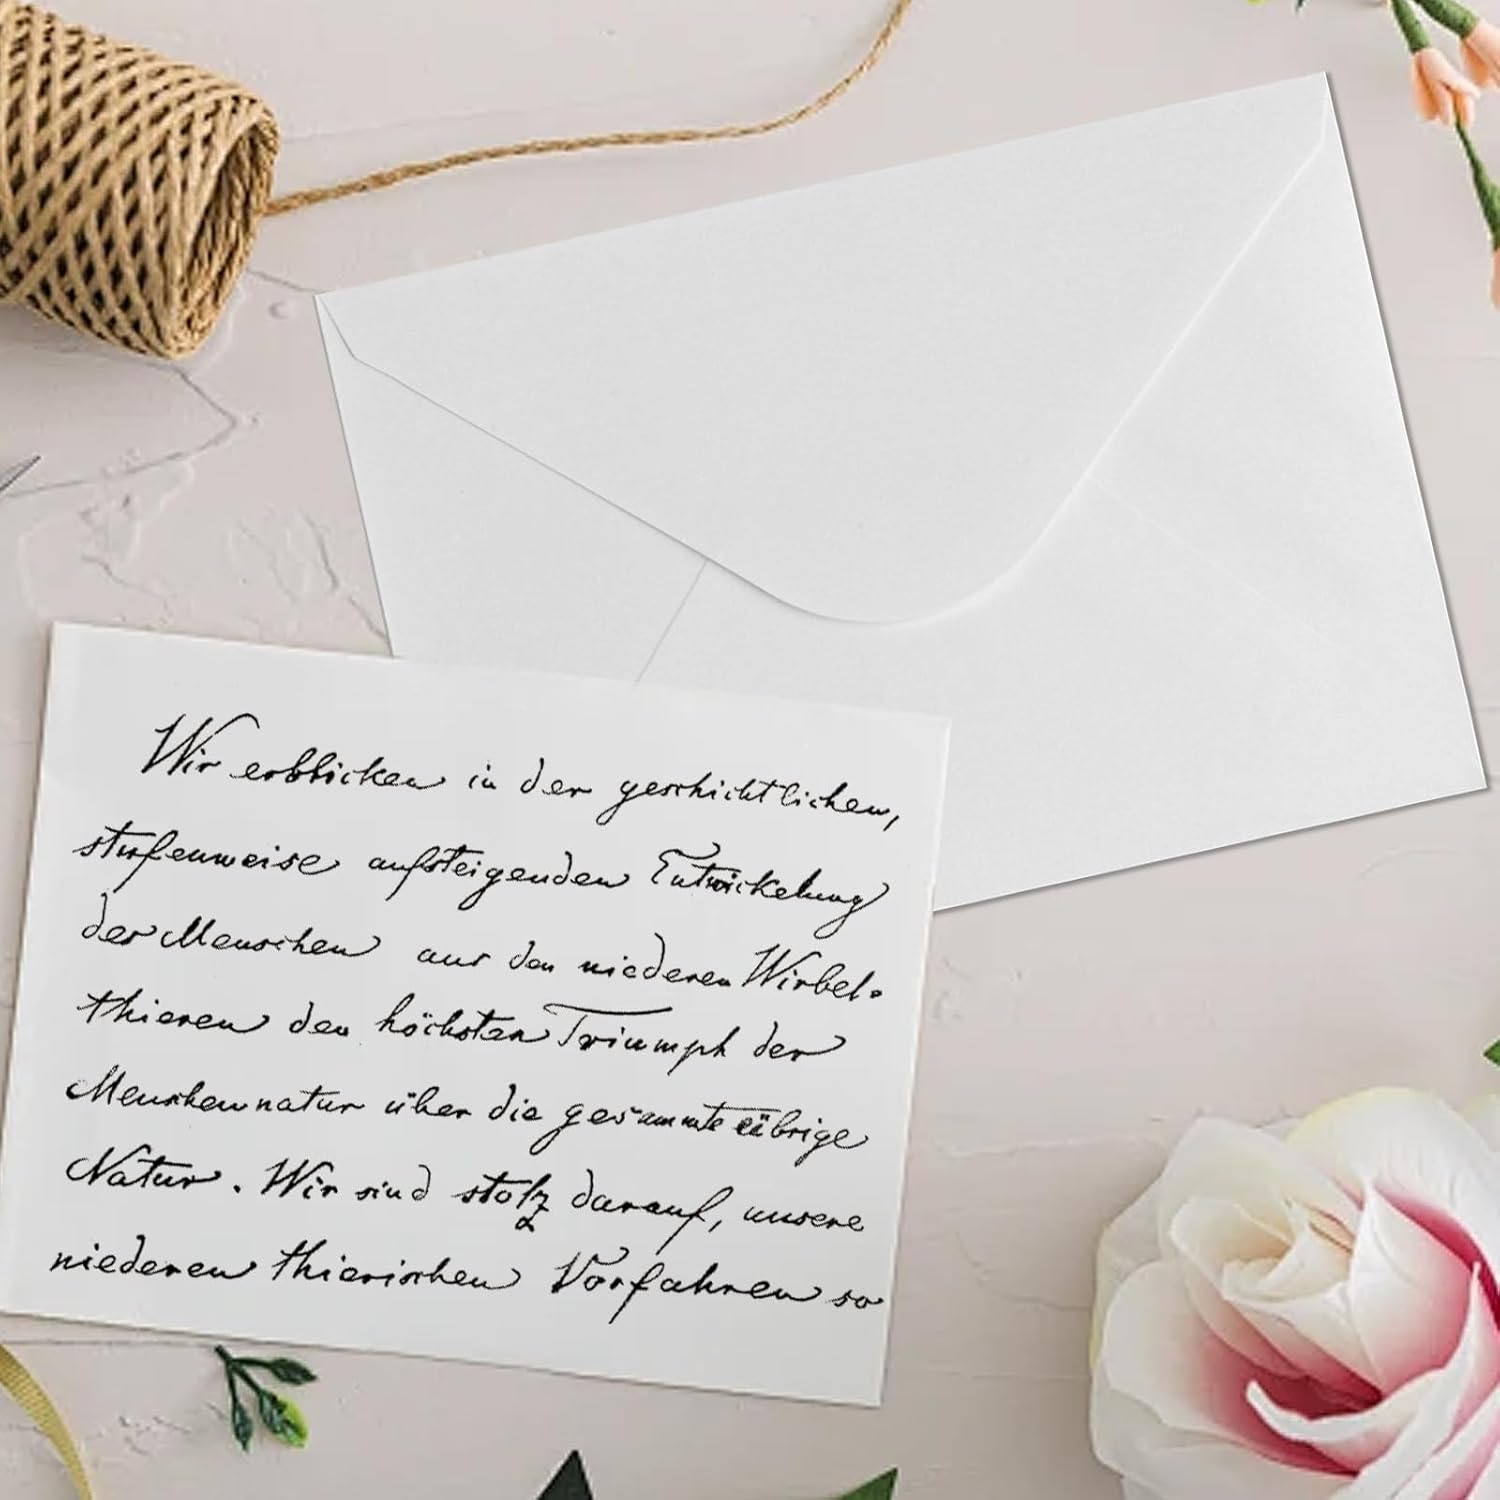 Wir erblicken in der geschichtlichen,
stufenweise aufsteigenden Entwickelung
der Menschen aus den niederen Wirbel-
thieren den höchsten Triumph der
Menschennatur über die gesammte übrige
Natur. Wir sind stolz darauf, unsere
niederen thierischen Vorfahren so